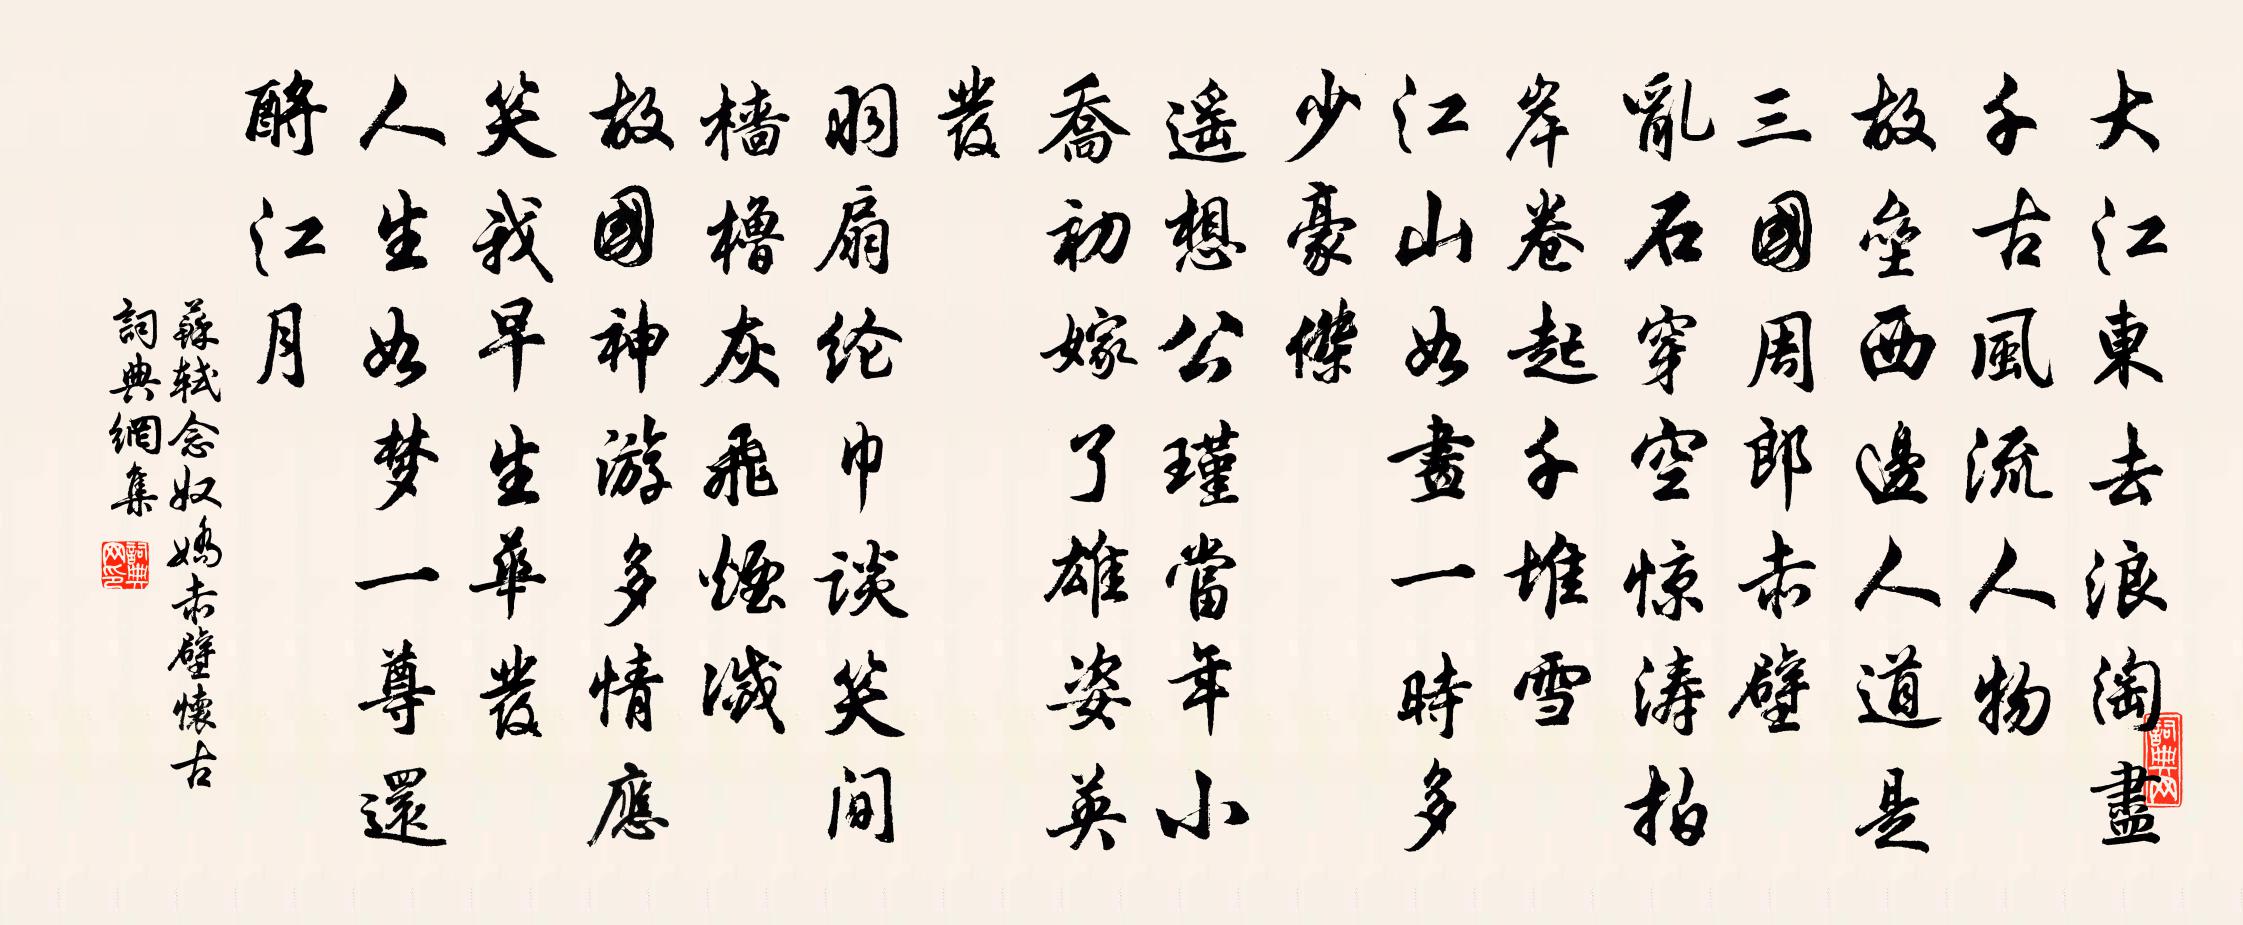 大江東去浪淘盡
千古風流人物
故壘西邊人道是
三國周郎赤壁
亂石穿空惊涛拍
岸卷起千堆雪
江山如畫一時多
少豪傑
遥想公瑾當年小
喬初嫁了雄姿英
發
羽扇纶巾谈笑间
檣櫓灰飛煙滅
故國神游多情應
笑我早生華發
人生如梦一尊還
酹江月
蘇軾念奴嬌赤壁懷古
詞典網集
詞典网
詞典网印